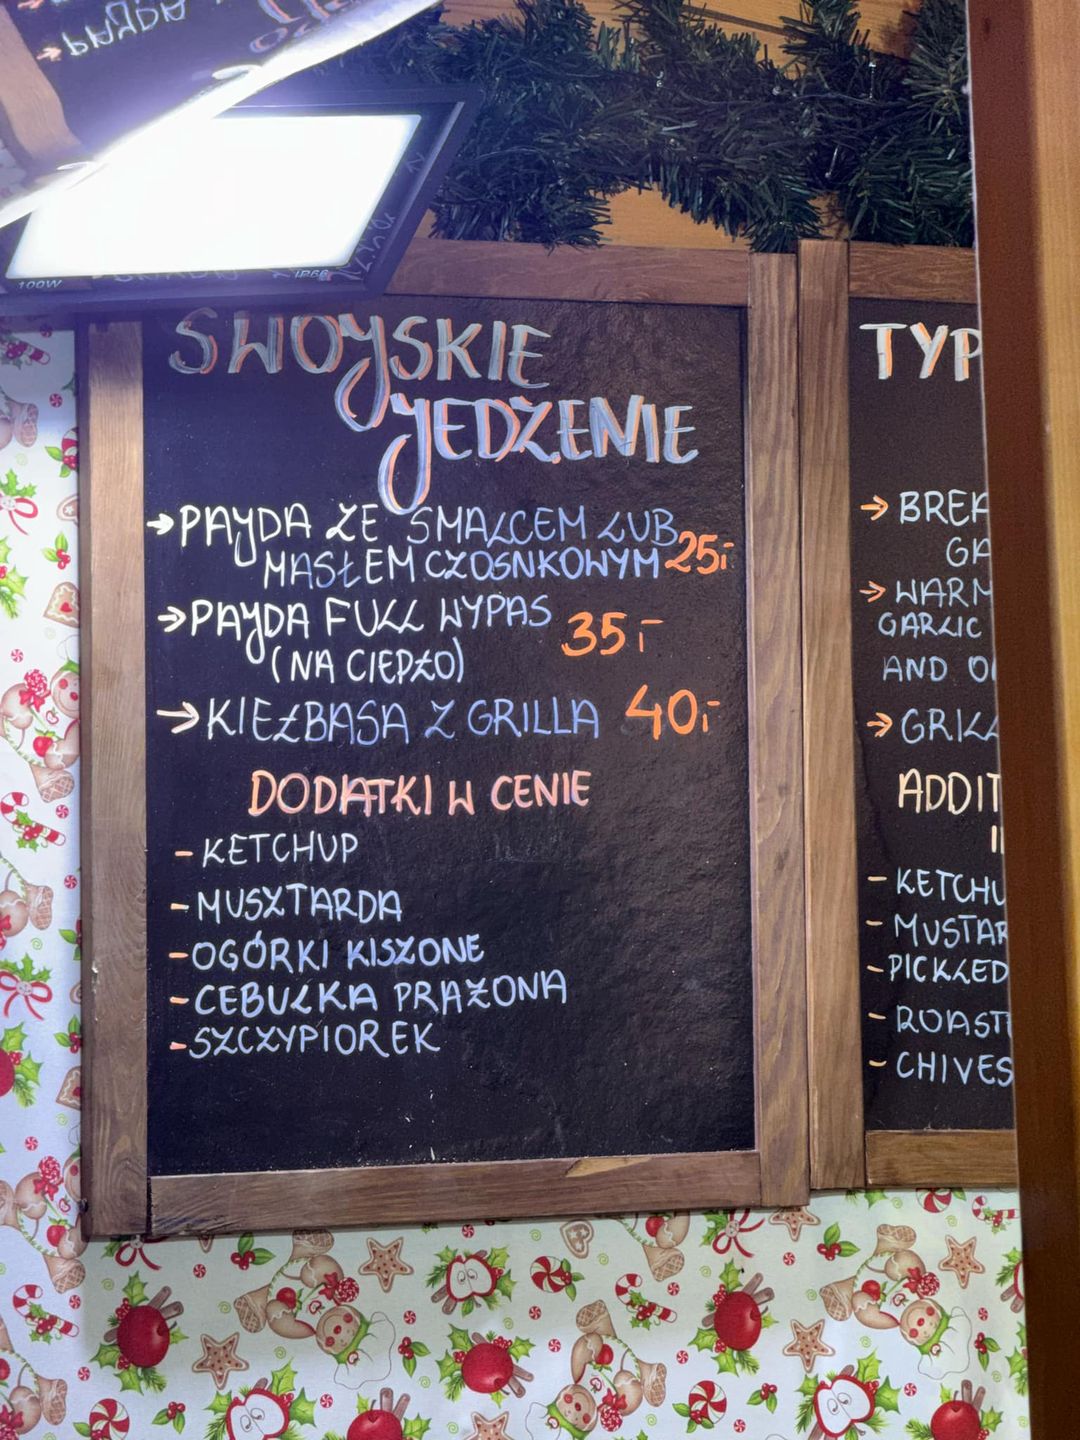 PAJDA
100W
IP66
SWOJSKIE
JEDZENIE
→ PAJDA ZE SMALCEM LUB
MASŁEM CZOSNKOWYM 25,-
→ PAJDA FULL WYPAS 35,-
(NA CIEPŁO)
→ KIEŁBASA Z GRILLA 40,-
DODATKI W CENIE
- KETCHUP
- MUSZTARDA
- OGÓRKI KISZONE
- CEBULKA PRAŻONA
- SZCZYPIOREK
TYP
→ BREA
GA
→ WARM
GARLIC
AND O
→ GRILL
ADDIT
I
- KETCHU
- MUSTAR
- PICKLED
- ROAST
- CHIVES